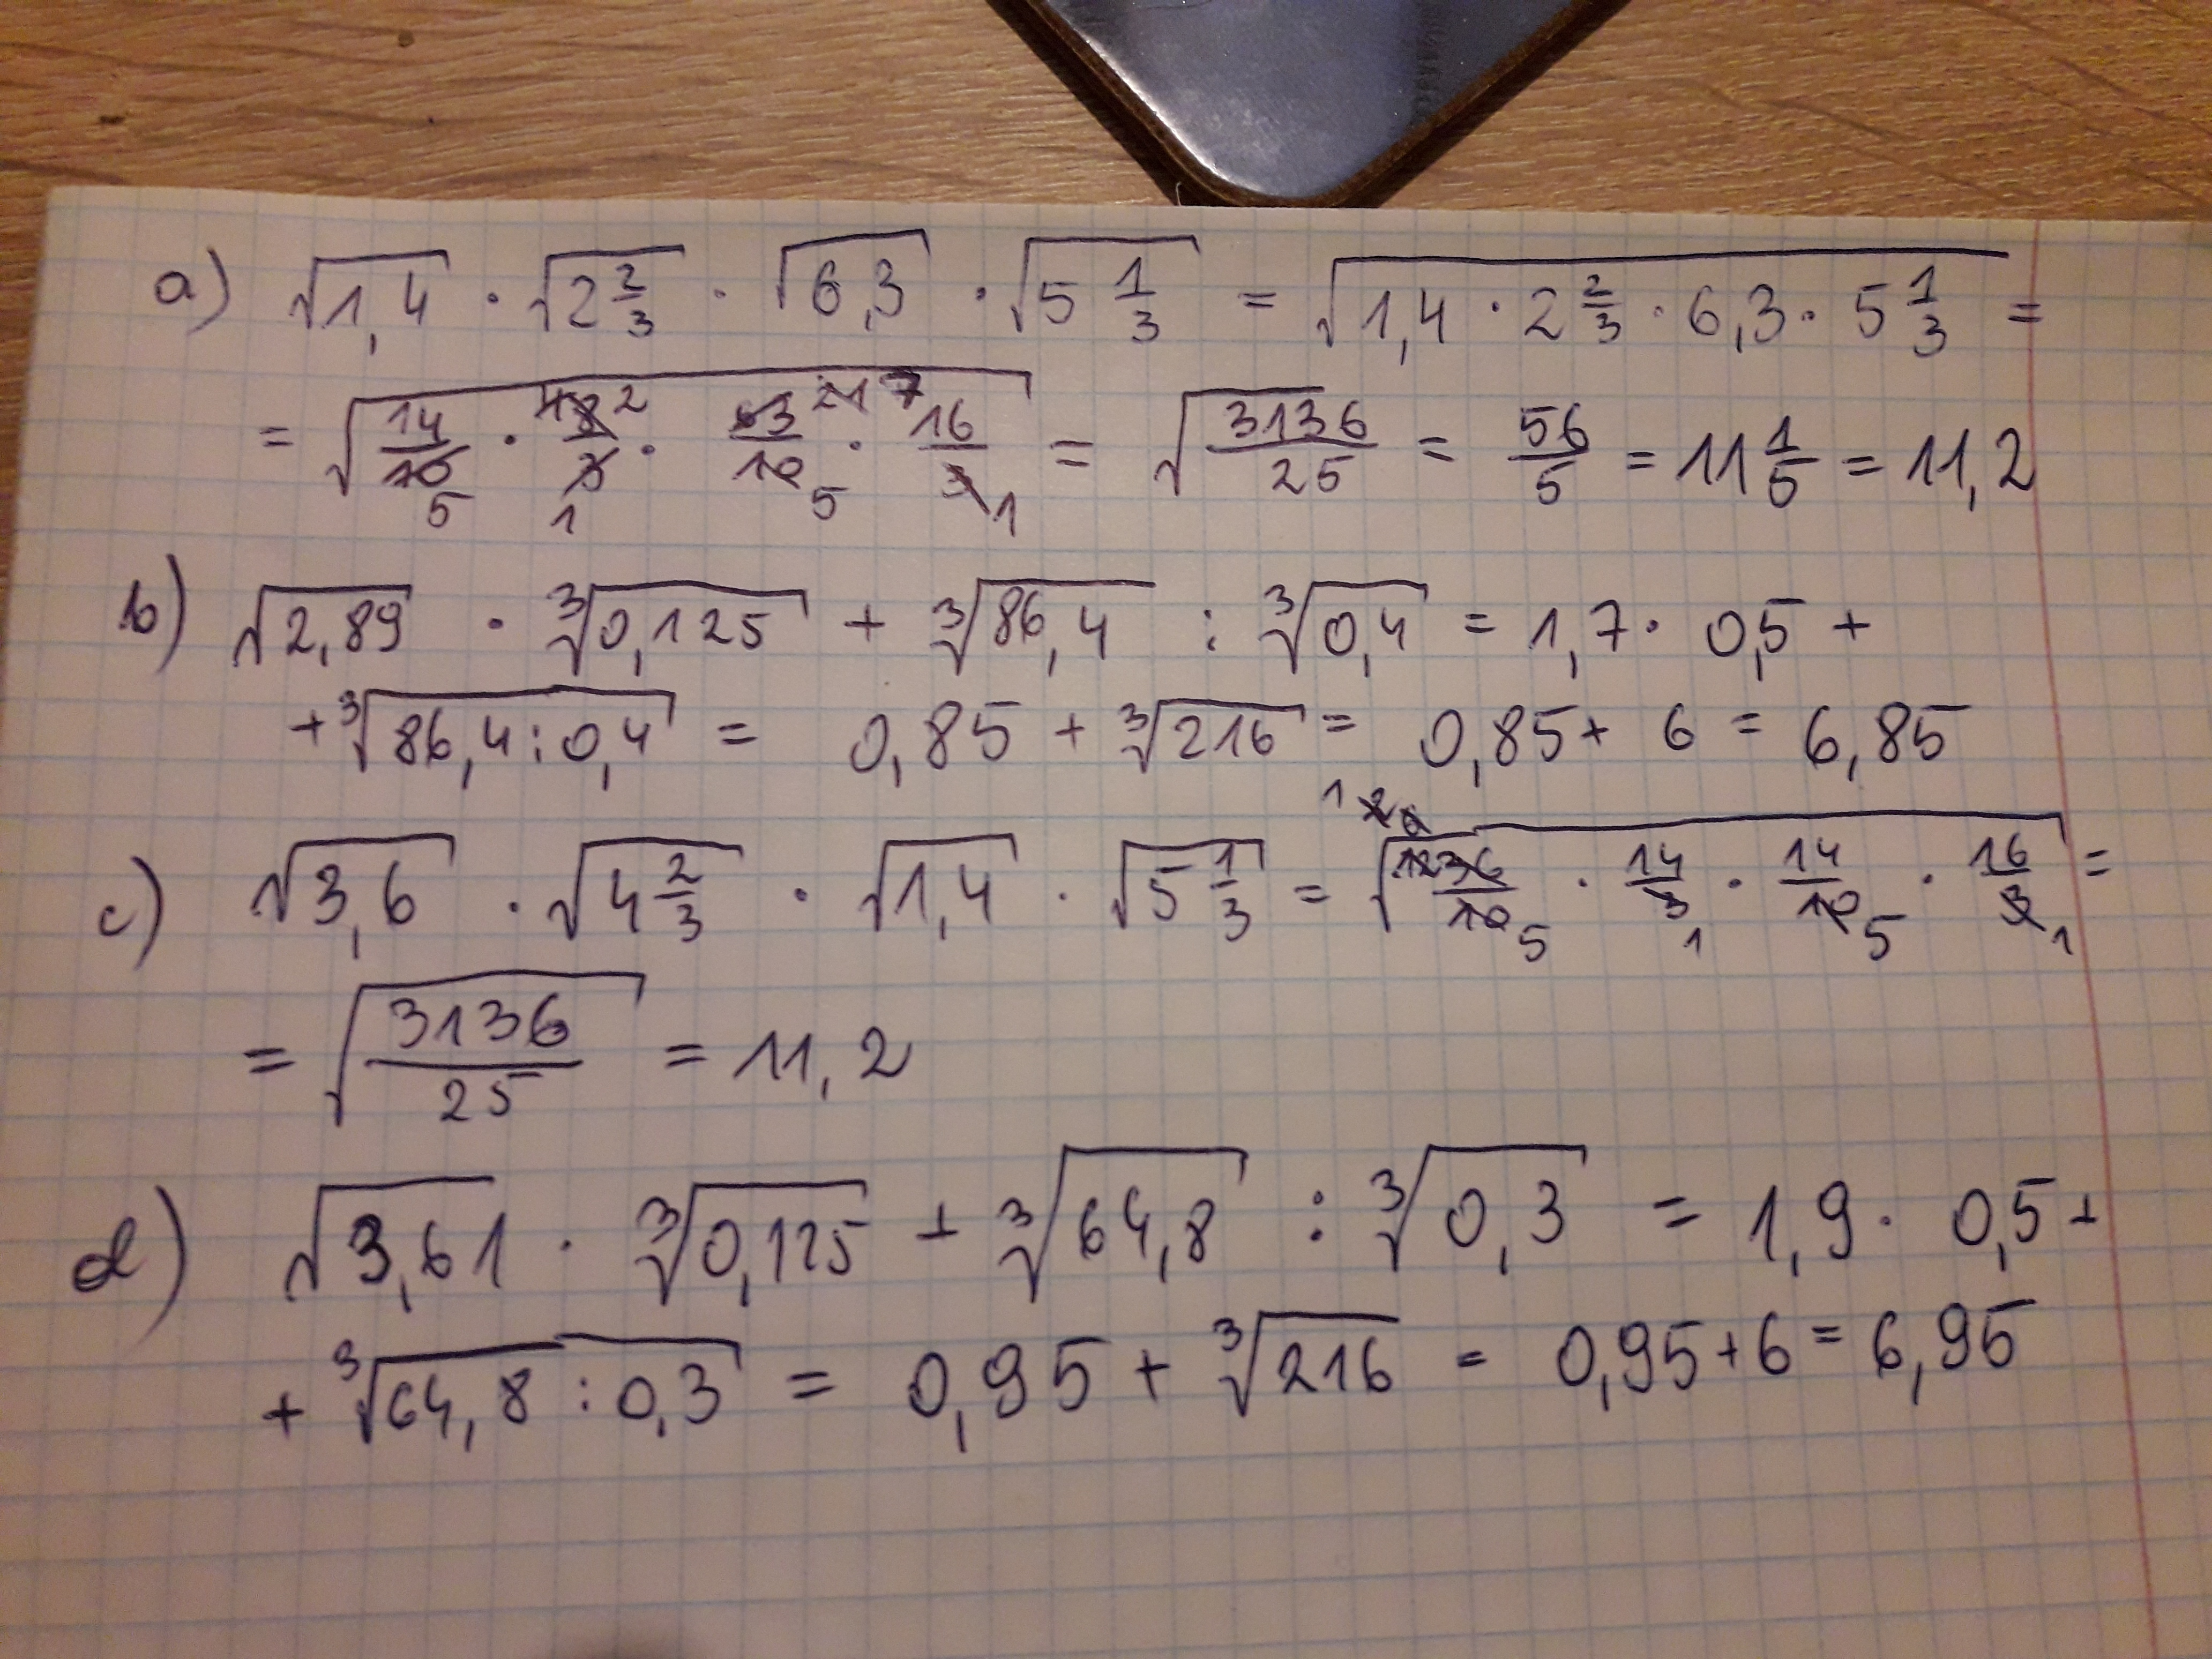 a) √1,4 · √2 2/3 · √6,3 · √5 1/3 = √1,4 · 2 2/3 · 6,3 · 5 1/3 =
= √14/10 5 · 4 8 2/3 1 · 63 21 7/10 5 · 16/3 1 = √3136/25 = 56/5 = 11 1/5 = 11,2
b) √2,89 · ³√0,125 + ³√86,4 : ³√0,4 = 1,7 · 0,5 +
+ ³√86,4 : 0,4 = 0,85 + ³√216 = 0,85 + 6 = 6,85
c) √3,6 · √4 2/3 · √1,4 · √5 1/3 = √36/10 5 · 14/3 1 · 14/10 5 · 16/3 1 =
= √3136/25 = 11,2
d) √3,61 · ³√0,125 + ³√64,8 : ³√0,3 = 1,9 · 0,5 +
+ ³√64,8 : 0,3 = 0,95 + ³√216 = 0,95 + 6 = 6,95